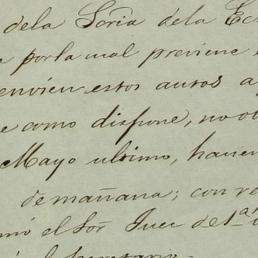 dela Soria dela Ec
porla cual previene
envien estos autos a
como dispone, no ob
Mayo ultimo, hacien
de mañana; con re
el Sor Juez de 1ª